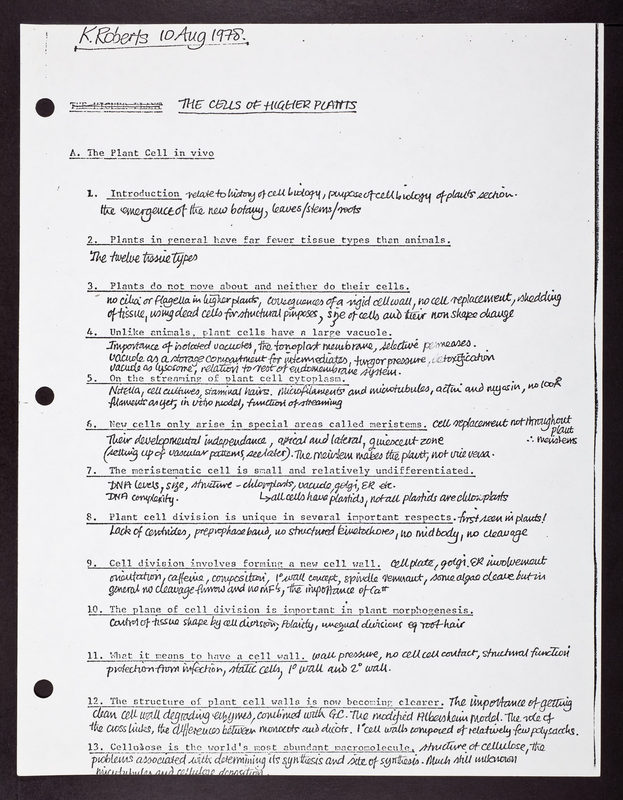 K. Roberts 10 Aug 1978.
THE CELLS OF HIGHER PLANTS
A. The Plant Cell in vivo
1. Introduction relate to history of cell biology, purpose of cell biology of plants section.
the emergence of the new botany, leaves/stems/roots
2. Plants in general have far fewer tissue types than animals.
The twelve tissue types
3. Plants do not move about and neither do their cells.
no cilia or flagella in higher plants, consequences of a rigid cell wall, no cell replacement, shedding
of tissue, using dead cells for structural purposes, size of cells and their non shape change
4. Unlike animals, plant cells have a large vacuole.
Importance of isolated vacuoles, the tonoplast membrane, selective permeases.
vacuole as a storage compartment for intermediates, turgor pressure, detoxification
vacuole as lysosome, relation to rest of endomembrane system.
5. On the streaming of plant cell cytoplasm.
Nitella, cell cultures, staminal hairs. Microfilaments and microtubules, actin and myosin, no 100Å
filaments as yet, in vitro model, function of streaming
6. New cells only arise in special areas called meristems. cell replacement not throughout
plant
Their developmental independence, apical and lateral, quiescent zone ∴ meristems
(setting up of vascular patterns, see later). The meristem makes the plant, not vice versa.
7. The meristematic cell is small and relatively undifferentiated.
DNA levels, size, structure - chloroplasts, vacuole, golgi, ER etc.
DNA complexity. ↳ all cells have plastids, not all plastids are chloroplasts
8. Plant cell division is unique in several important respects. - first seen in plants!
Lack of centrioles, preprophase band, no structured kinetochores, no midbody, no cleavage
9. Cell division involves forming a new cell wall. cell plate, golgi, ER involvement
orientation, caffeine, composition, 1° wall concept, spindle remnant, some algae cleave but in
general no cleavage furrow and no MFs, the importance of Ca++
10. The plane of cell division is important in plant morphogenesis.
Control of tissue shape by cell division, Polarity, unequal divisions eg root hair
11. What it means to have a cell wall. wall pressure, no cell cell contact, structural function
protection from infection, static cells, 1° wall and 2° wall.
12. The structure of plant cell walls is now becoming clearer. The importance of getting
clean cell wall degrading enzymes, combined with G.C. The modified Albersheim model. The role of
the cross links, the differences between monocots and dicots. 1° cell walls composed of relatively few polysaccs.
13. Cellulose is the world's most abundant macromolecule. structure of cellulose, the
problems associated with determining its synthesis and site of synthesis. Much still unknown
microtubules and cellulose deposition.